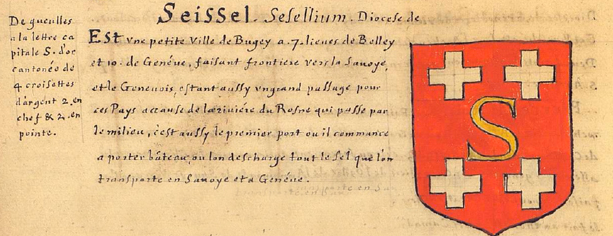 Seissel. Sesellium. Diocese de
De gueulles
a la lettre ca
pitale S. d'or
cantonée de
4 croisettes
d'argent 2. en
chef & 2. en
pointe.
Est vne petite Ville de Bugey a 7. lieues de Belley
et 10. de Genéve, faisant frontiere vers la Savoye,
et le Genevois estant aussy vn grand passage pour
ces Pays accause de la riviére du Rosne qui passe par
le milieu, c'est aussy le premier port ou il commance
a porter bateau, ou lon descharge tout le sel que lon
transporte en Savoye et a Genéve.
S